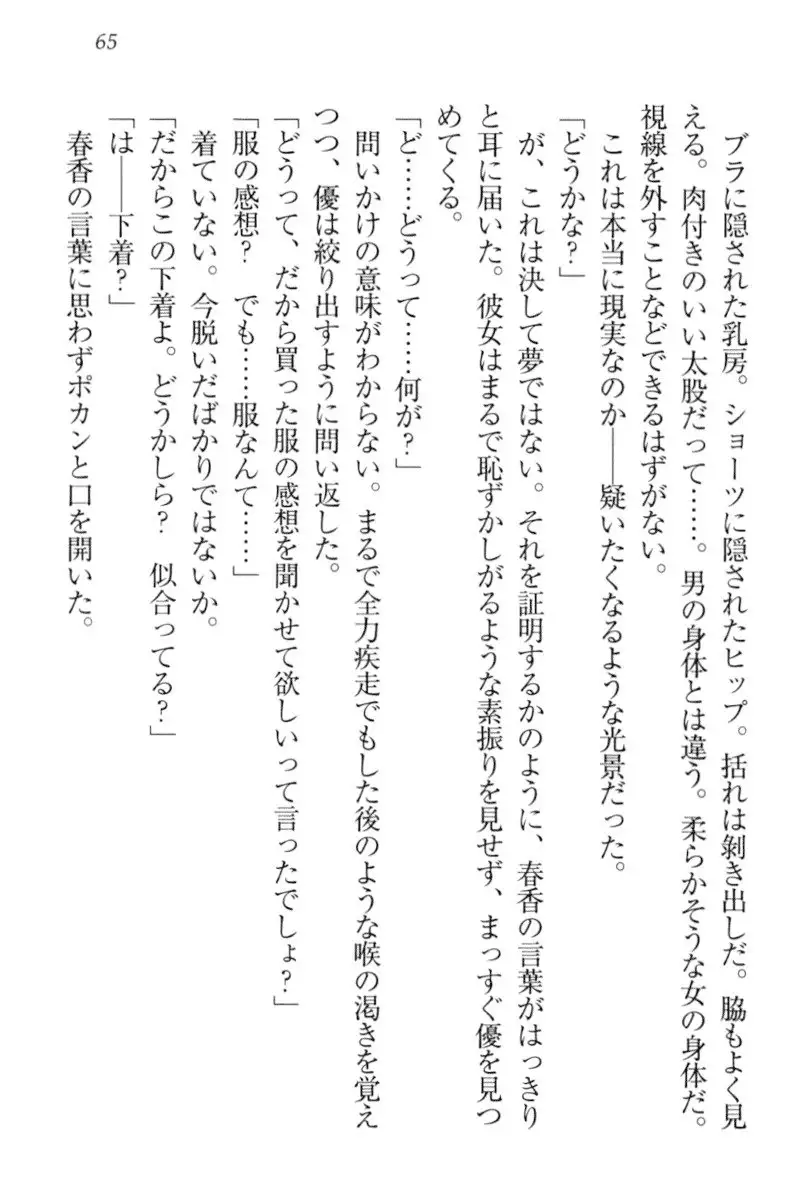 65
ブラに隠された乳房。ショーツに隠されたヒップ。括れは剝き出しだ。脇もよく見
える。肉付きのいい太股だって……。男の身体とは違う。柔らかそうな女の身体だ。
視線を外すことなどできるはずがない。
これは本当に現実なのか――疑いたくなるような光景だった。
「どうかな？」
が、これは決して夢ではない。それを証明するかのように、春香の言葉がはっきり
と耳に届いた。彼女はまるで恥ずかしがるような素振りを見せず、まっすぐ優を見つ
めてくる。
「ど……どうって……何が？」
問いかけの意味がわからない。まるで全力疾走でもした後のような喉の渇きを覚え
つつ、優は絞り出すように問い返した。
「どうって、だから買った服の感想を聞かせて欲しいって言ったでしょ？」
「服の感想？　でも……服なんて……」
着ていない。今脱いだばかりではないか。
「だからこの下着よ。どうかしら？　似合ってる？」
「は――下着？」
春香の言葉に思わずポカンと口を開いた。